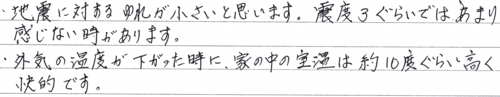 ・地震に対するゆれが小さいと思います。震度3ぐらいではあまり
感じない時があります。
・外気の温度が下がった時に、家の中の室温は約10度ぐらい高く
快的です。